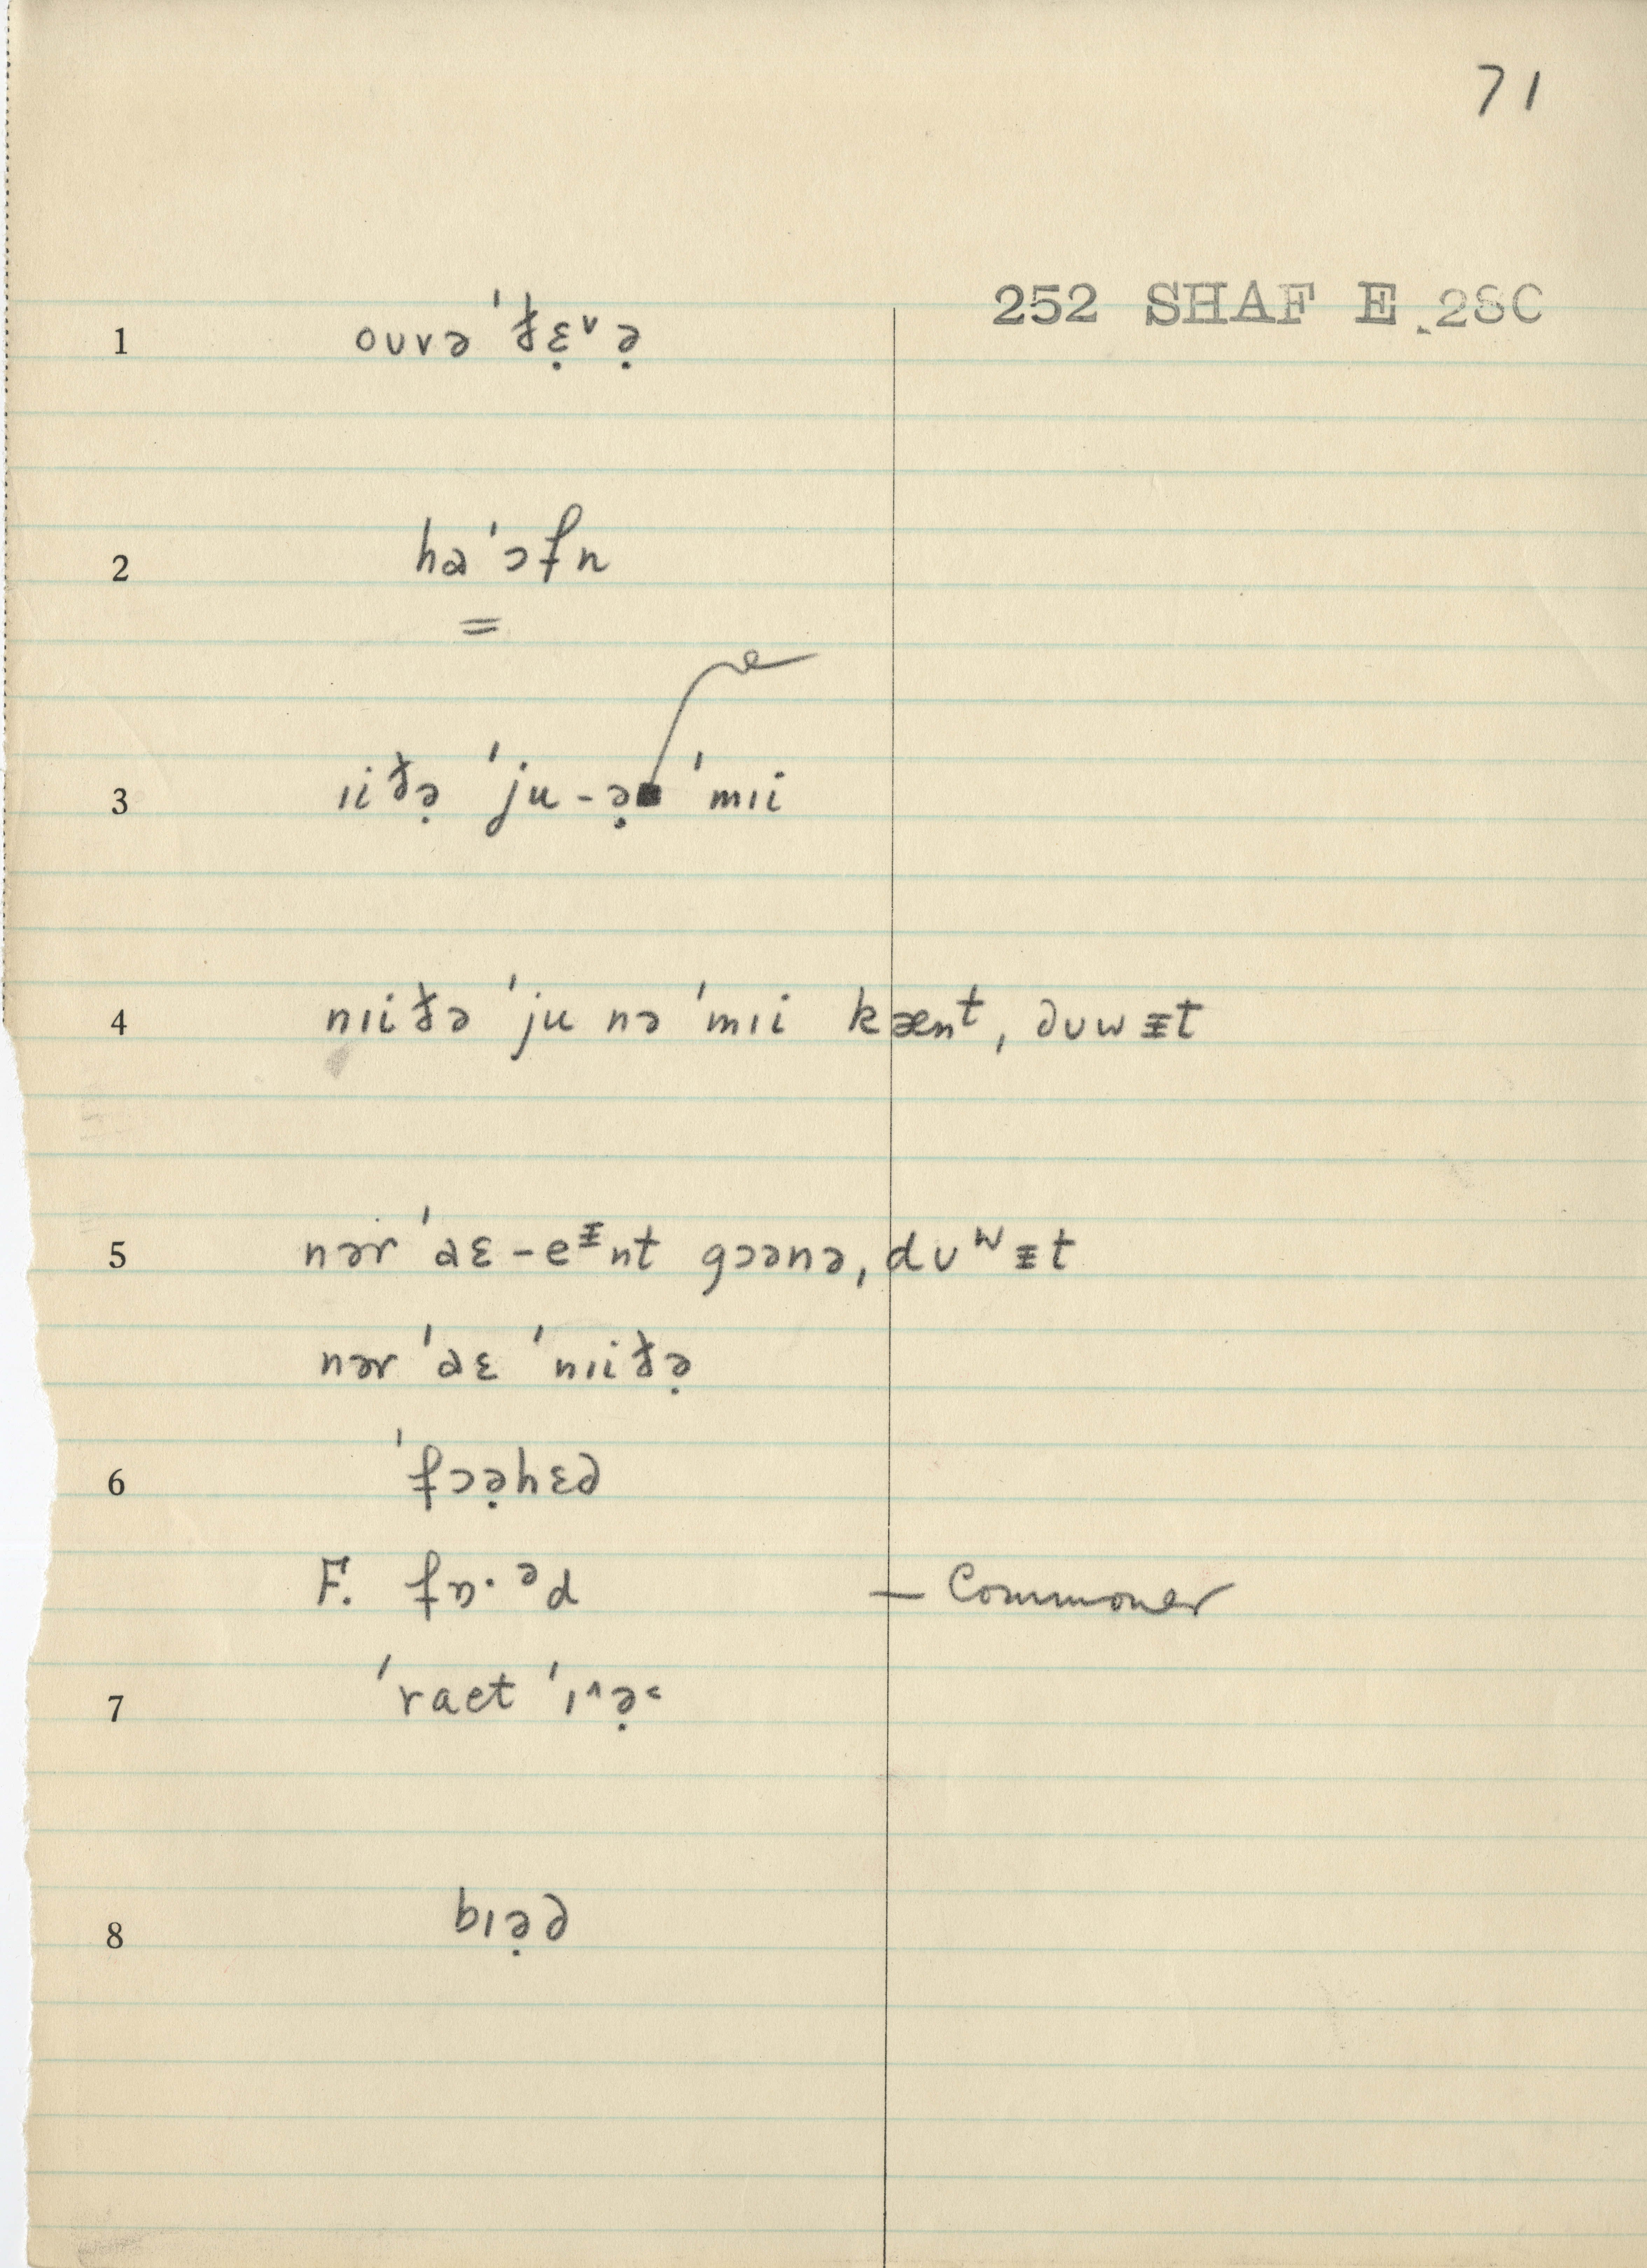 71
252 SHAF E.28C
1 ouvə ˈð̵ɛ̣ᵛə̣
2 haˈɔfn
=
3 ɪiðə̣ ˈju-ə̣■ ˈmɪi
4 nɪiðə ˈju nə ˈmɪi kænᵗ, ∂ᴜwᵻt
5 nər ˈɑɛ-eᶧnt gɔənə, dᴜʷᵻt
nər ˈɑɛ ˈnɪiðə̣
6 ˈfɔə̣hɛ∂
F. fɒ·ᵊd — Commoner
7 ˈraet ˈɪ^ə̣˂
8 bɪə̣∂